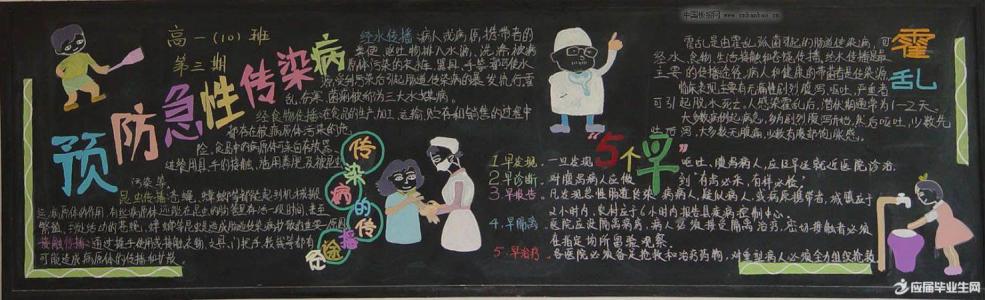 中国板报网
高一(10)班
第三期
预防急性传染病
经水传播:病人或病原携带者的
粪便、呕吐物排入水源,洗涤被病
原体污染的衣物、器具、手等都可使水
源受到污染引起肠道传染病的暴发流行,霍
乱、伤寒、菌痢被称为三大水媒病。
经食物传播:在食品的生产、加工、运输、贮存和销售的过程中
都存在被病原体污染的危
险,食品中的病原体可来自存放器
污染等。
昆虫传播:苍蝇、蟑螂等都能起到机械搬
运病原体的作用,有些病原体还能在昆虫的肠管里存活一段时间,甚至
接触传播:通过握手、使用或接触衣物、文具、门把手、钱币等都有
可能造成病原体的传播和扩散。
传染病的传播途径
霍乱
霍乱是由霍乱弧菌引起的肠道传染病,可
经水、食物、生活接触和苍蝇传播,经水传播是最
主要的传播途径,病人和健康的带菌者是传染源,
临床表现主要有无痛性剧烈腹泻、呕吐,严重者
可引起脱水死亡。人感染霍乱后,潜伏期通常为1-2天。
大多数病例起病急,多为剧烈腹泻开始,然后呕吐,少数先
吐后泻,大多数无腹痛,少数有腹部饱胀感。
“5个早”
1.早发现,一旦发现呕吐、腹泻病人,应及早送就近医院诊治。
2.早诊断,对腹泻病人应做到“有泻必采,有样必检”。
3.早报告,凡发现急性肠道传染病病人、疑似病人,或病原携带者,城镇应于
2小时内,农村应于6小时内报告县疾病控制中心。
4.早隔离,医院应设隔离病房,病人必须接受隔离治疗,密切接触者必须
在指定场所留验观察。
5.早治疗,各医院必须备足抢救和治疗药物,对重型病人必须全力组织抢救
应届毕业生网